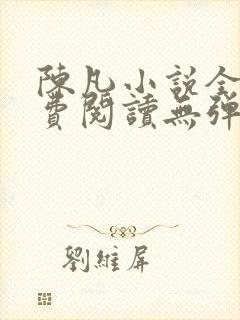 陳凡小說全
費閱讀無彈
劉維屏